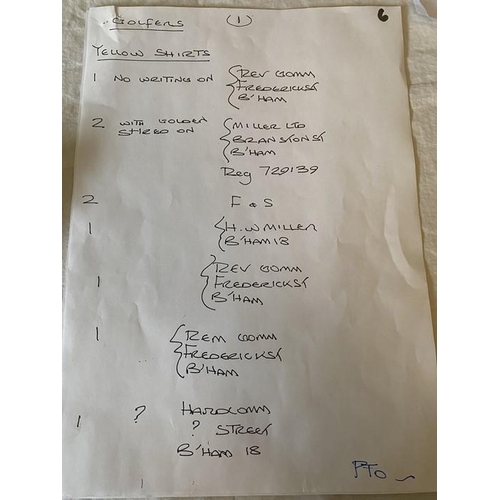 GOLFERS (1) 6
YELLOW SHIRTS
1 NO WRITING ON { REV GOMM
FREDERICK ST
B'HAM
2 WITH GOLDEN { MILLER LTD
ON BRANSTON ST
B'HAM
Reg 729139
2 F & S
1 { H.W MILLER
B'HAM 18
1 { REV GOMM
FREDERICK ST
B'HAM
1 { REM GOMM
FREDERICK ST
B'HAM
1 ? HARDCOMM
? STREET
B'HAM 18
PTO